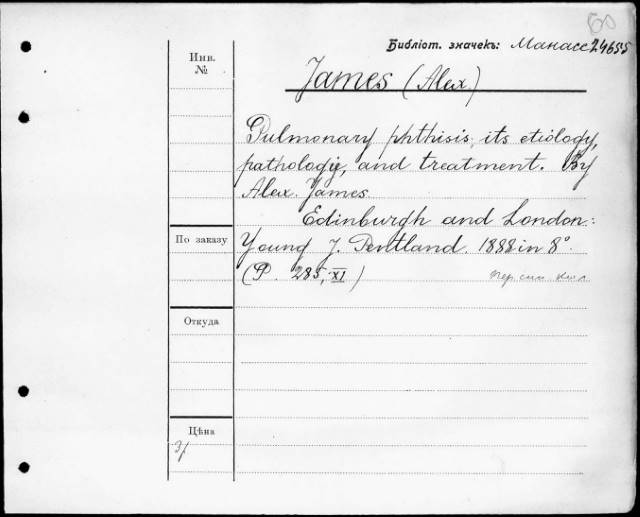 60
Библіот. значекъ: Манасс 24655
Инв.
№
James (Alex.)
Pulmonary phthisis, its etiology,
pathologie, and treatment. By
Alex. James
Edinburgh and London:
По заказу
Young J. Pentland. 1888 in 8°
(P. 285, XI)
Откуда
Цѣна
3/